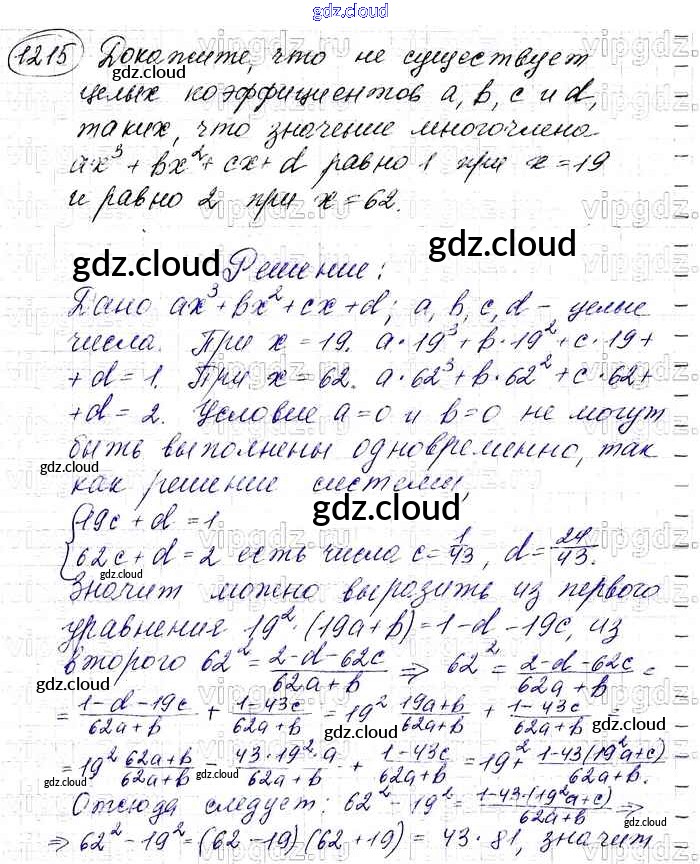 gdz.cloud
1215 Докажите, что не существует
целых коэффициентов a, b, c и d,
таких, что значение многочлена
ax³ + bx² + cx + d равно 1 при x = 19
и равно 2 при x = 62.
gdz.cloud gdz.cloud
Решение:
Дано ax³ + bx² + cx + d; a, b, c, d – целые
числа. При x = 19. a · 19³ + b · 19² + c · 19 +
+ d = 1. При x = 62. a · 62³ + b · 62² + c · 62 +
+ d = 2. Условие a = 0 и b = 0 не могут
быть выполнены одновременно, так
gdz.cloud
как решение системы,
gdz.cloud
{19c + d = 1
62c + d = 2 есть числа c = 1/43, d = 24/43.
gdz.cloud
Значит можно выразить из первого
уравнения 19² · (19a + b) = 1 - d - 19c, из
второго 62² = (2 - d - 62c)/(62a + b) ⇒ 62² = (2 - d - 62c)/(62a + b) =
gdz.cloud
= (1 - d - 19c)/(62a + b) + (1 - 43c)/(62a + b) = 19² (19a + b)/(62a + b) + (1 - 43c)/(62a + b) =
gdz.cloud
= 19² (62a + b)/(62a + b) - (43 · 19² · a)/(62a + b) + (1 - 43c)/(62a + b) = 19² + (1 - 43(19²a + c))/(62a + b).
gdz.cloud gdz.cloud
Отсюда следует: 62² - 19² = (1 - 43 · (19²a + c))/(62a + b) ⇒
⇒ 62² - 19² = (62 - 19)(62 + 19) = 43 · 81, значит